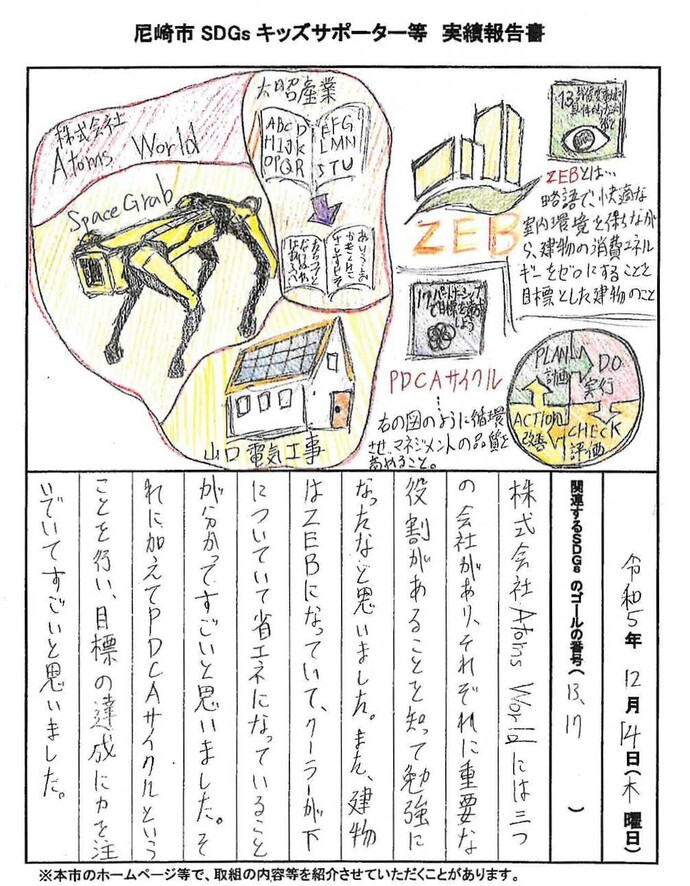 尼崎市 SDGs キッズサポーター等 実績報告書
株式会社
Atoms World
Space Grab
太昭産業
ABCD
HIJK
OPQR
EFG
LMN
STU
山口電気工事
ZEB
ZEBとは…
略語で快適な
室内環境を保ちなが
ら、建物の消費エネル
ギーをゼロにすることを
目標とした建物のこと
17パートナーシップ
で目標を達成
しよう
PDCAサイクル
右の図のように循環
させ、マネジメントの品質を
高めること。
PLAN
計画
DO
実行
CHECK
評価
ACTION
改善
令和5年 12月 14日(木曜日)
関連するSDGsのゴールの番号( 13、17 )
株式会社Atoms Worldには三つ
の会社があり、それぞれに重要な
役割があることを知って勉強に
なったなと思いました。また、建物
はZEBになっていて、クーラーが下
についていて省エネになっていること
が分かってすごいと思いました。そ
れに加えてPDCAサイクルという
ことを行い、目標の達成に力を注
いでいてすごいと思いました。
※本市のホームページ等で、取組の内容等を紹介させていただくことがあります。